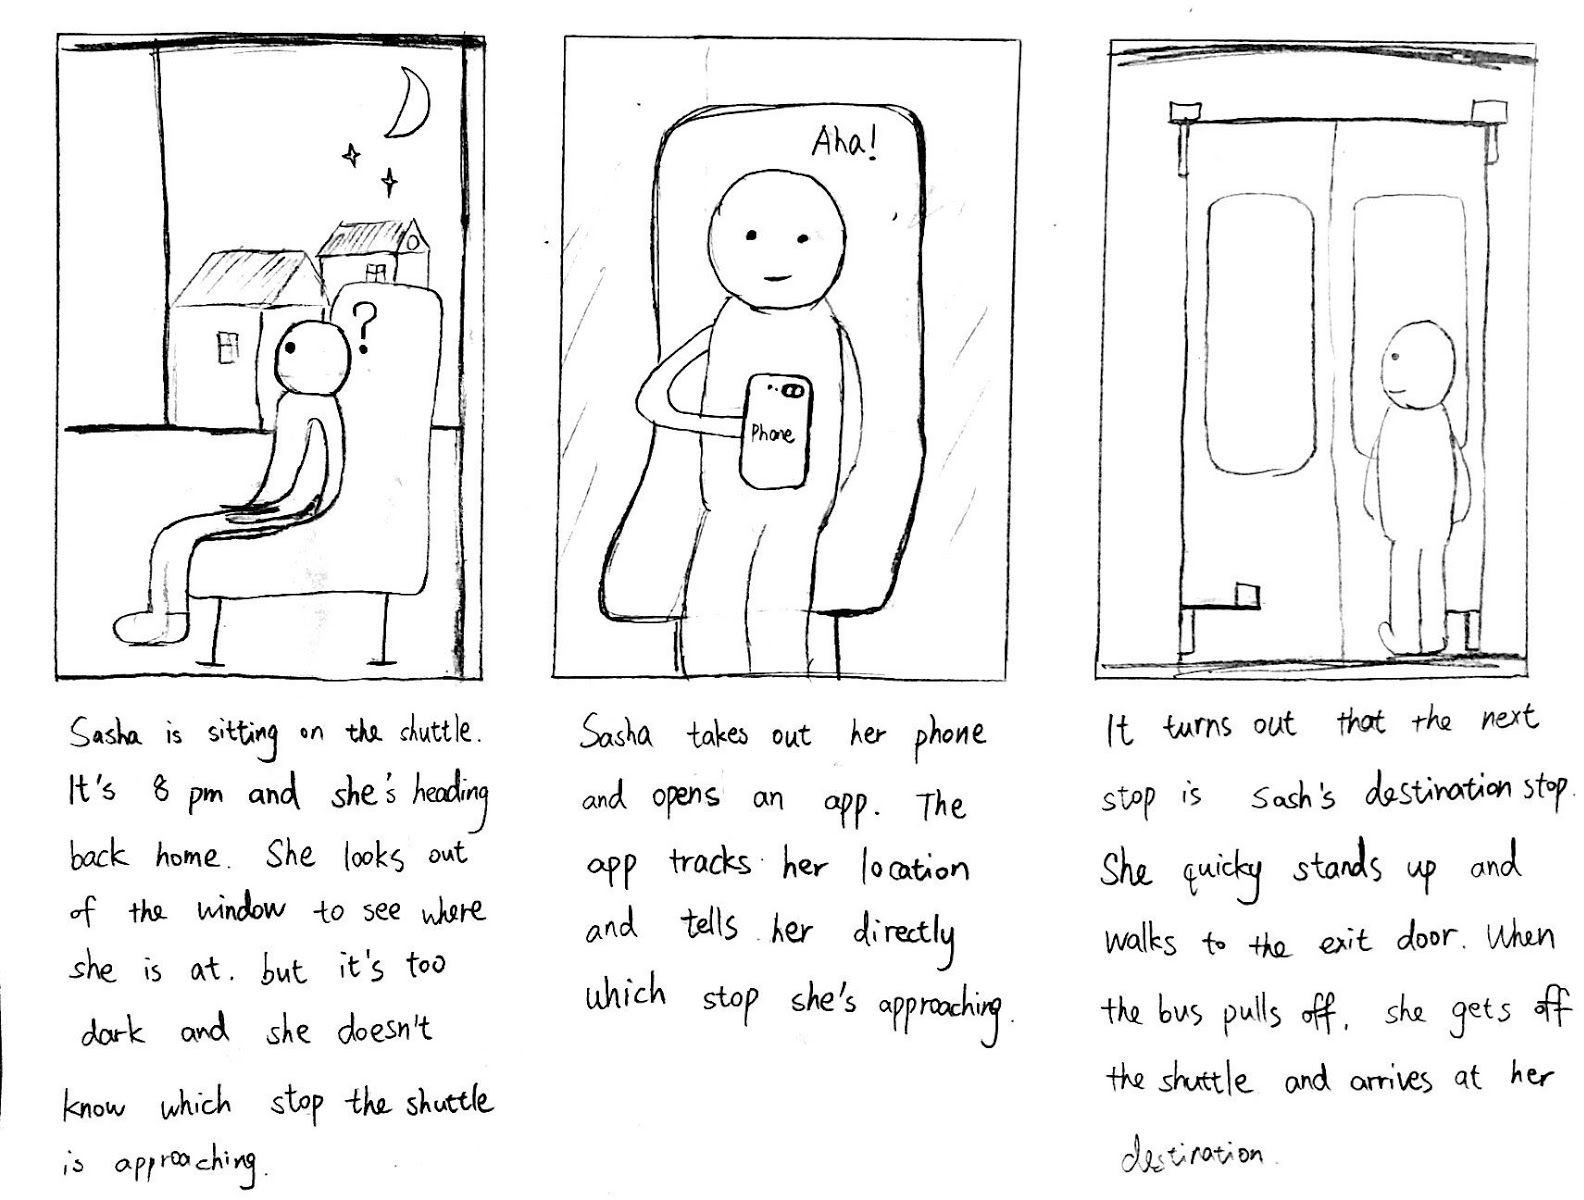 ?
Sasha is sitting on the shuttle.
It's 8 pm and she's heading
back home. She looks out
of the window to see where
she is at. but it's too
dark and she doesn't
know which stop the shuttle
is approaching.
Aha!
Phone
Sasha takes out her phone
and opens an app. The
app tracks her location
and tells her directly
which stop she's approaching.
It turns out that the next
stop is Sash's destination stop.
She quicky stands up and
walks to the exit door. When
the bus pulls off, she gets off
the shuttle and arrives at her
destination.